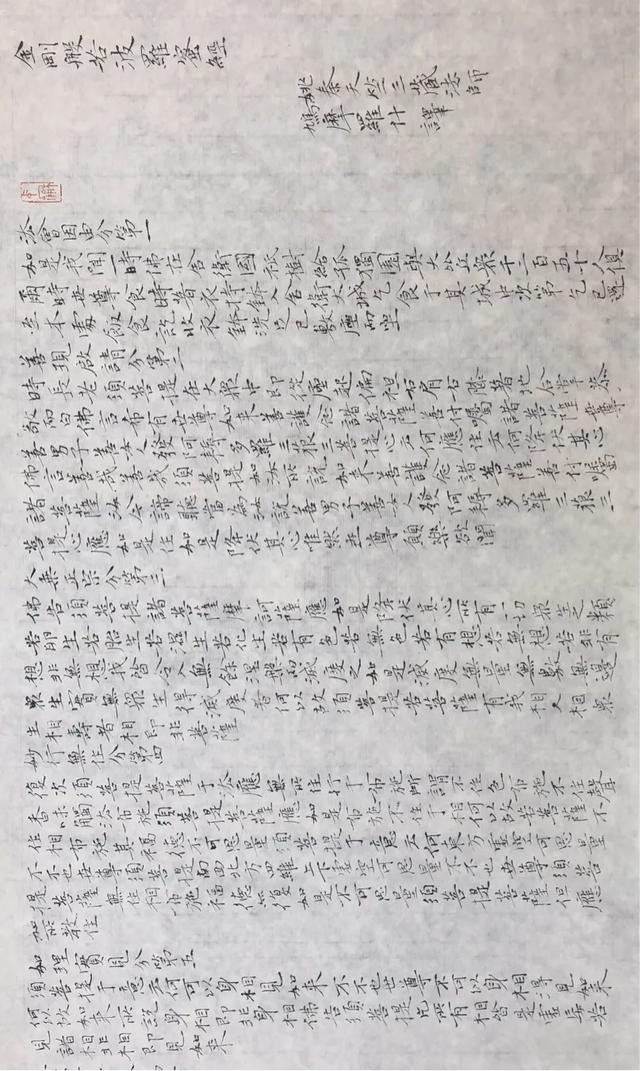 金剛般若波羅蜜經
姚秦天竺三藏法師
鳩摩羅什 譯
法會因由分第一
如是我聞一時佛在舍衛國祇樹給孤獨園與大比丘眾千二百五十人俱
爾時世尊食時著衣持鉢入舍衛大城乞食于其城中次第乞已還
至本處飯食訖收衣鉢洗足已敷座而坐
善現啟請分第二
時長老須菩提在大眾中即從座起偏袒右肩右膝著地合掌恭
敬而白佛言希有世尊如來善護念諸菩薩善付囑諸菩薩世尊
善男子善女人發阿耨多羅三藐三菩提心云何應住云何降伏其心
佛言善哉善哉須菩提如汝所說如來善護念諸菩薩善付囑
諸菩薩汝今諦聽當為汝說善男子善女人發阿耨多羅三藐三
菩提心應如是住如是降伏其心唯然世尊願樂欲聞
大乘正宗分第三
佛告須菩提諸菩薩摩訶薩應如是降伏其心所有一切眾生之類
若卵生若胎生若濕生若化生若有色若無色若有想若無想若非有
想非無想我皆令入無餘涅槃而滅度之如是滅度無量無數無邊
眾生實無眾生得滅度者何以故須菩提若菩薩有我相人相眾
生相壽者相即非菩薩
妙行無住分第四
復次須菩提菩薩于法應無所住行于布施所謂不住色布施不住聲
香味觸法布施須菩提菩薩應如是布施不住于相何以故若菩薩不
住相布施其福德不可思量須菩提于意云何東方虛空可思量
不不也世尊須菩提南西北方四維上下虛空可思量不不也世尊須菩
提菩薩無住相布施福德亦復如是不可思量須菩提菩薩但應
如所教住
如理實見分第五
須菩提于意云何可以身相見如來不不也世尊不可以身相得見如來
何以故如來所說身相即非身相佛告須菩提凡所有相皆是虛妄若
見諸相非相即見如來